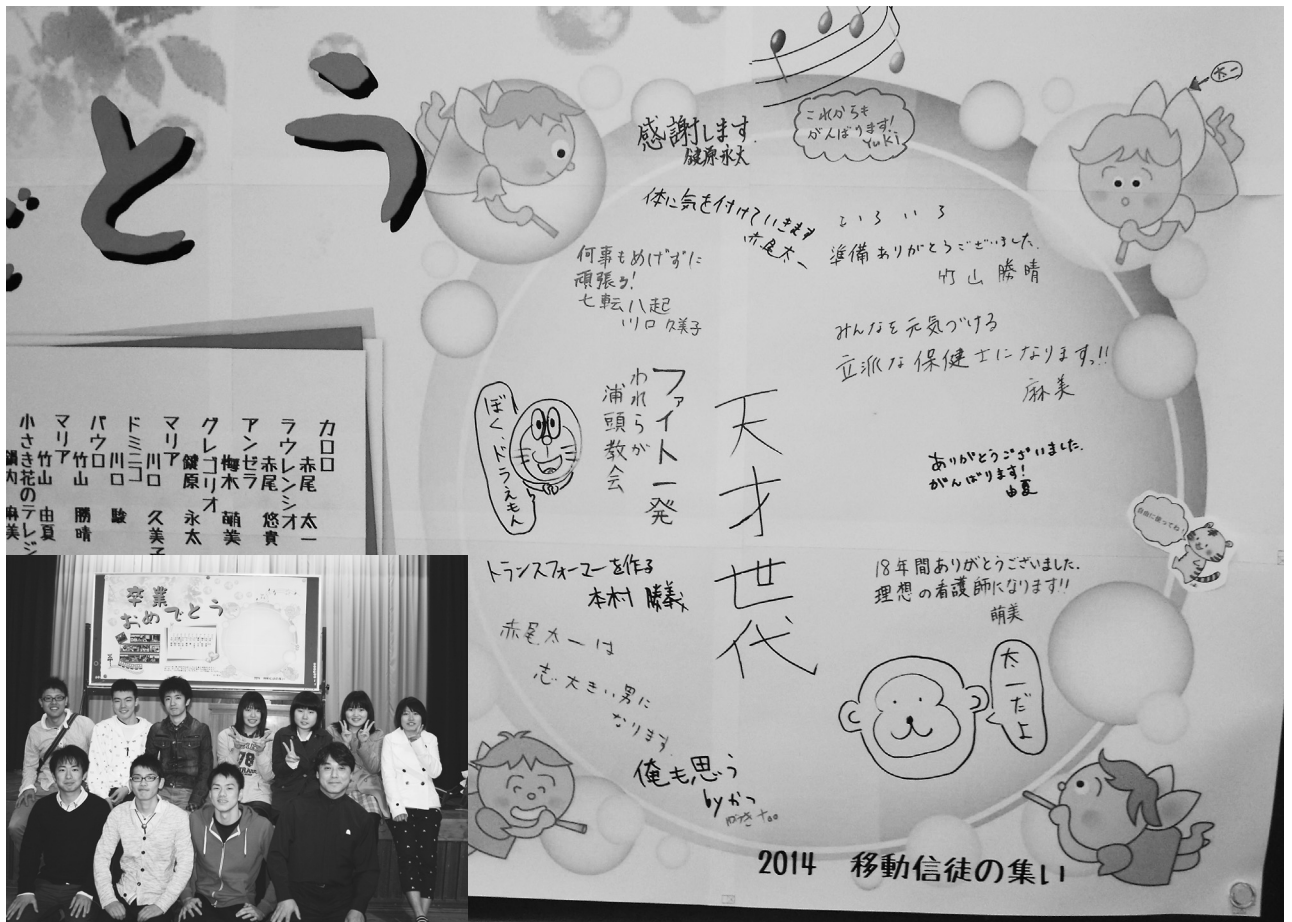 とう
太一
感謝します
鍵原永太
これからも
がんばります!
Yuki
体に気を付けていきます
赤尾太一
いろいろ
準備ありがとうございました.
竹山勝晴
何事もめげずに
頑張る!
七転八起
川口久美子
みんなを元気づける
立派な保健士になりますっ!!
麻美
ファイト一発
われらが
浦頭教会
ぼく、ドラえもん
天才世代
ありがとうございました.
がんばります!
由夏
自由に使ってね!
トランスフォーマーを作る
本村勝義
18年間ありがとうございました.
理想の看護師になります!!
萌美
赤尾太一は
志大きい男に
なります
俺も思う
byかつ
太一だよ
2014 移動信徒の集い
カロロ
赤尾 太一
ラウレンシオ
赤尾 悠貴
アンゼラ
梅木 萌美
グレゴリオ
鍵原 永太
マリア
川口 久美子
ドミニコ
川口 駿
パウロ
竹山 勝晴
マリア
竹山 由夏
小さき花のテレジ
麻美
卒業
おめでとう